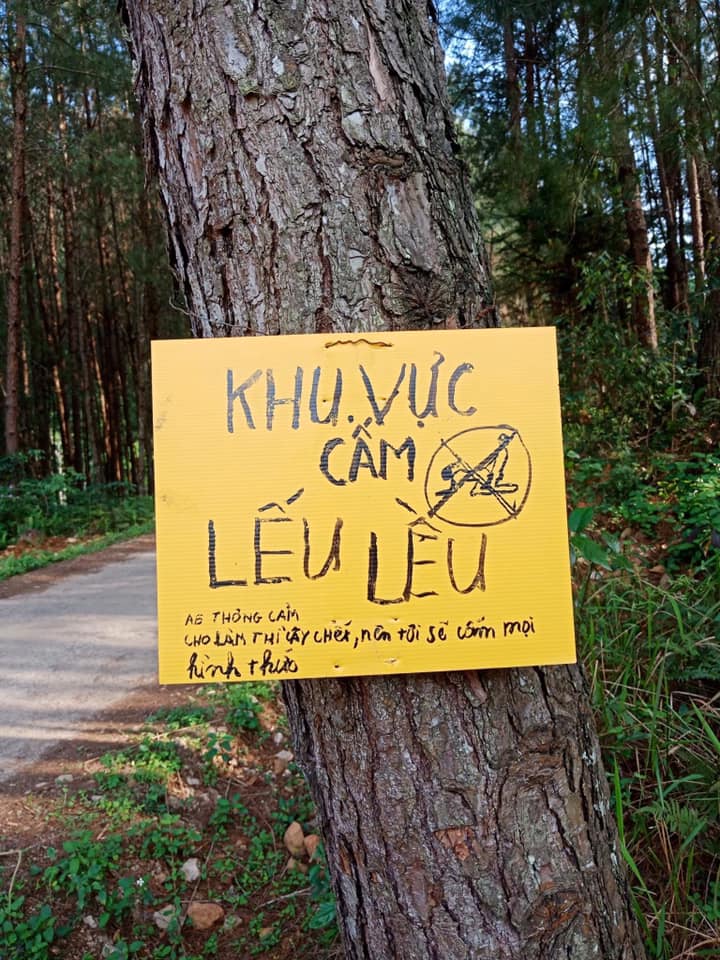 KHU.VỰC
CẤM
LẾU LỀU
AE THÔNG CẢM
CHO LÀM THÌ CÂY CHẾT, NÊN TÔI SẼ CẤM MỌI
hình thức